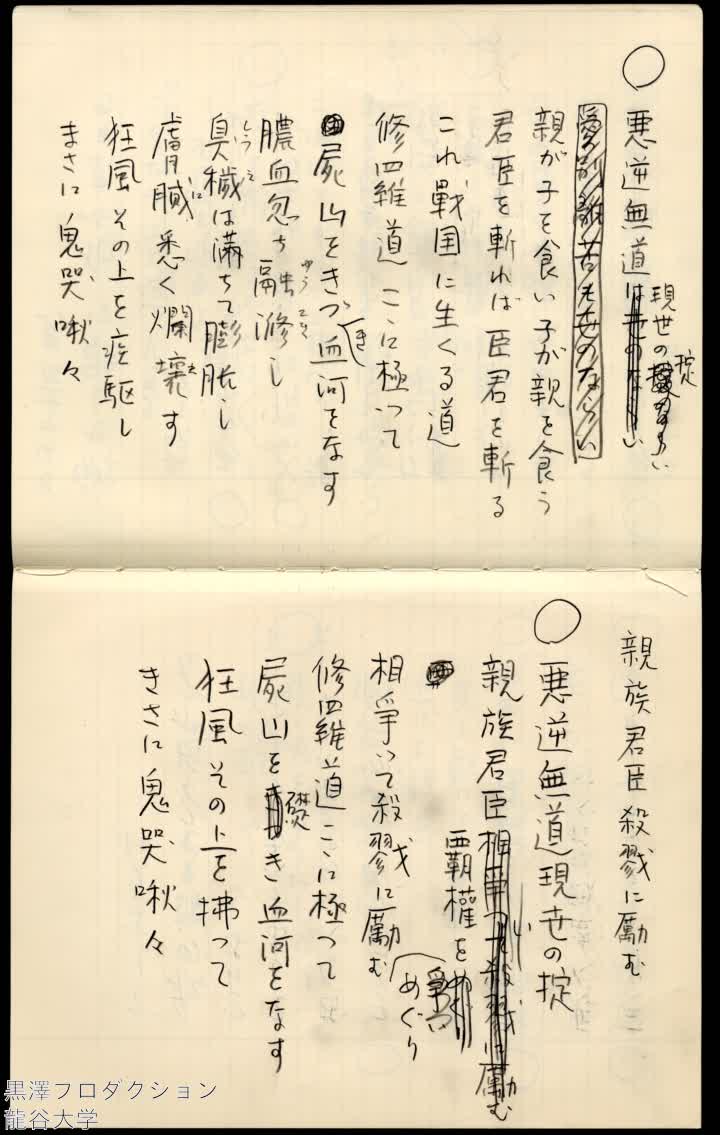 悪逆無道は世のならい
現世の掟
愛別離苦も世のならい
親が子を食い子が親を食う
君臣を斬れば臣君を斬る
これ戦国に生くる道
修羅道ここに極って
屍山をきづき血河をなす
膿血忽ち融滲し
臭穢は満ちて膨脹し
膚膩悉く爛壊す
狂風その上を疾駆し
まさに鬼哭啾々
親族君臣殺戮に励む
悪逆無道現世の掟
親族君臣相争って殺戮に励む
覇権を
めぐり
相争いて殺戮に励む
修羅道ここに極って
屍山を礎き血河をなす
狂風その上を拂って
まさに鬼哭啾々
黒澤プロダクション
龍谷大学